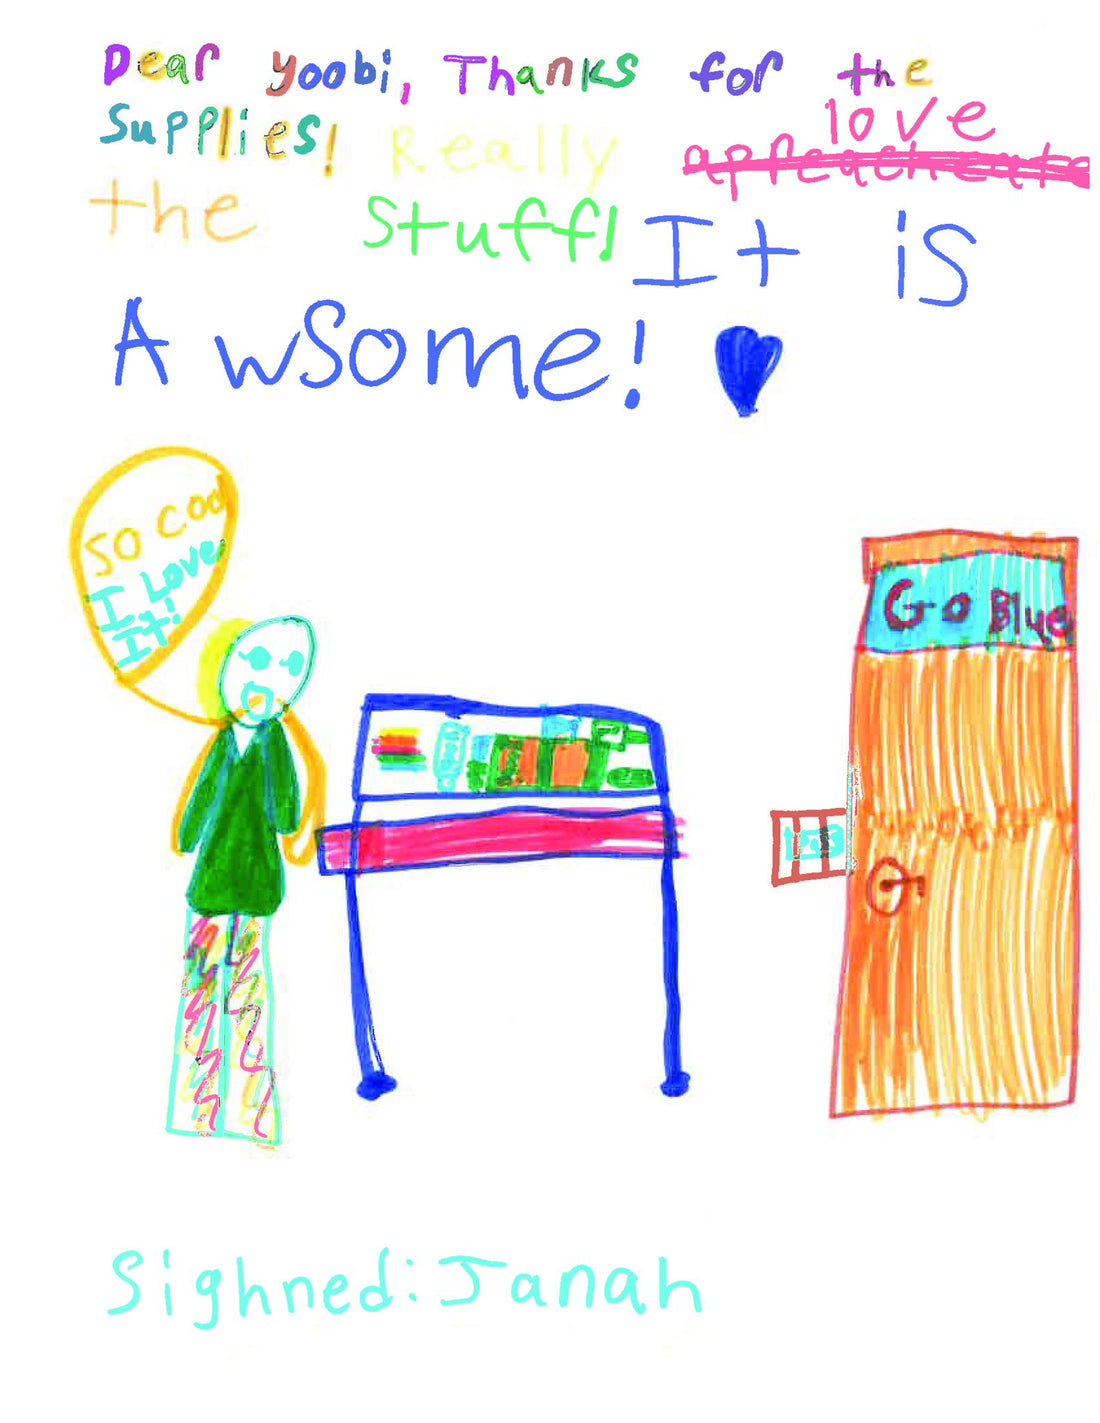 Dear Yoobi, Thanks for the
Supplies! Really love
the Stuff! It is
Awsome!
So Cool
I Love
It!
Go Blue
Sighned: Janah